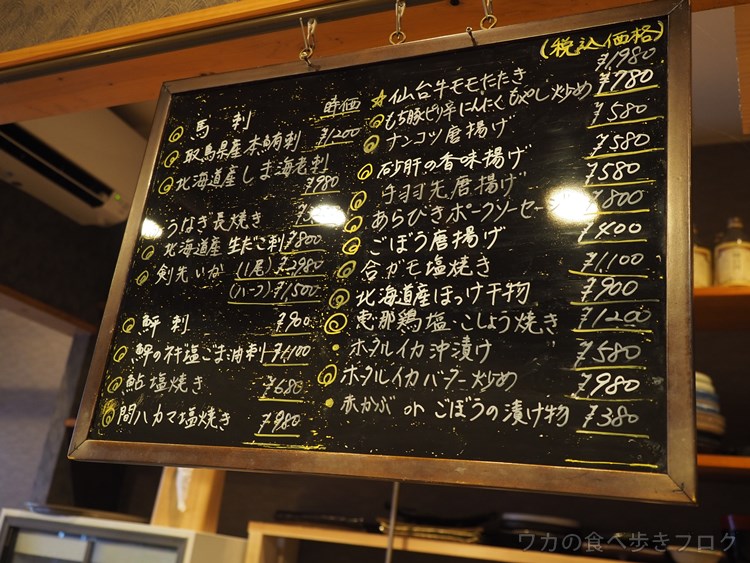 (税込価格)
馬刺 時価
鳥取県産本鮪刺 ¥1200
北海道産しま海老刺
¥980
うなぎ長焼き
北海道産生だこ刺 ¥800
剣先いか (1尾) ¥2,980
(ハーフ) ¥1,500
鮃刺 ¥900
鮃のネギ塩ごま油刺 ¥1,100
鮎塩焼き ¥680
間ハカマ塩焼き ¥980
☆仙台牛モモたたき ¥1,980
もち豚ピリ辛にんにくもやし炒め ¥780
ナンコツ唐揚げ ¥580
砂肝の香味揚げ ¥580
手羽先唐揚げ ¥580
あらびきポークソーセージ ¥800
ごぼう唐揚げ ¥400
合ガモ塩焼き ¥1,100
北海道産ほっけ干物 ¥900
恵那鶏塩・こしょう焼き ¥1200
・ホタルイカ沖漬け ¥580
ホタルイカバター炒め ¥980
・赤かぶ or ごぼうの漬け物 ¥380
ワカの食べ歩きブログ